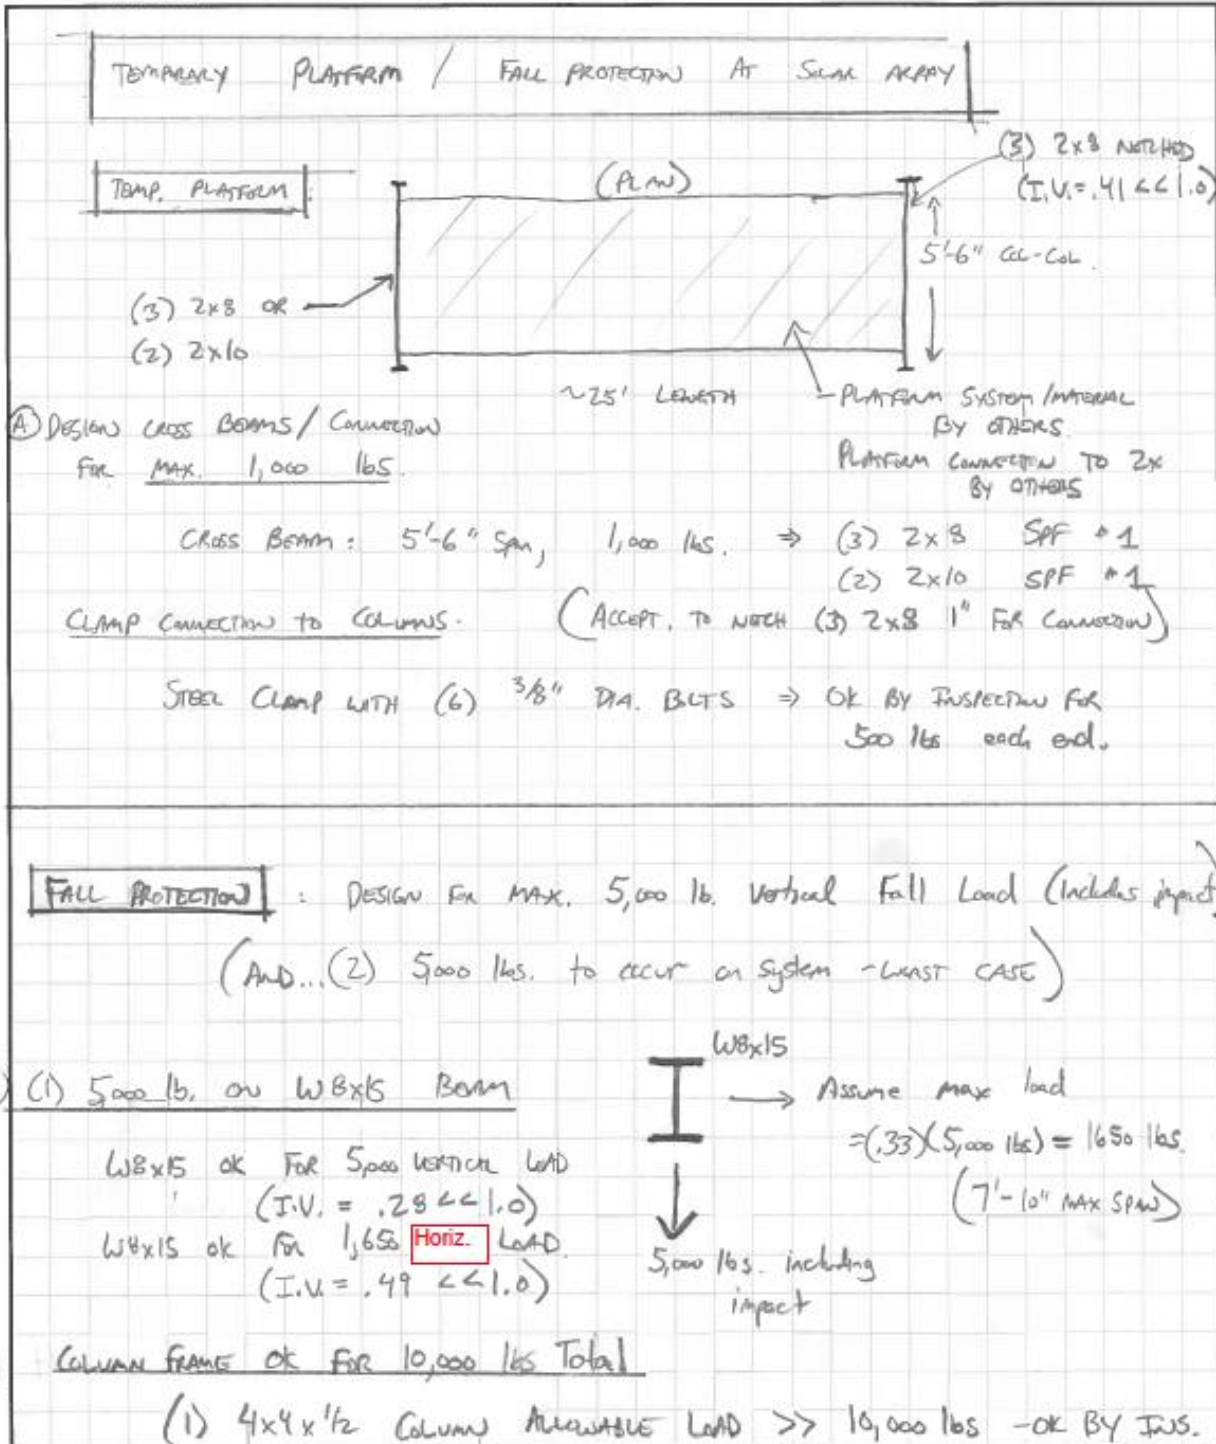 TEMPORARY PLATFORM / FALL PROTECTION AT SOLAR ARRAY
TEMP. PLATFORM :
(PLAN)
(3) 2x8 NOTCHED
(I.V. = .41 << 1.0)
5'-6" COL-COL.
(3) 2x8 OR
(2) 2x10
~25' LENGTH
PLATFORM SYSTEM/MATERIAL
BY OTHERS.
PLATFORM CONNECTION TO 2x
BY OTHERS
(A) DESIGN CROSS BEAMS / CONNECTION
FOR MAX. 1,000 lbs.
CROSS BEAM : 5'-6" Span, 1,000 lbs. ⇒ (3) 2x8 SPF #1
(2) 2x10 SPF #1
CLAMP CONNECTION TO COLUMNS.
(ACCEPT. TO NOTCH (3) 2x8 1" FOR CONNECTION)
STEEL CLAMP WITH (6) 3/8" DIA. BOLTS ⇒ OK BY INSPECTION FOR
500 lbs each end.
FALL PROTECTION : DESIGN FOR MAX. 5,000 lb. Vertical Fall Load (Includes impact)
(AND...(2) 5,000 lbs. to occur on system - WORST CASE)
(1) 5,000 lb. ON W8x15 BEAM
W8x15
→ Assume max load
=(.33)(5,000 lbs) = 1650 lbs.
(7'-10" MAX SPAN)
W8x15 OK FOR 5,000 VERTICAL LOAD
(I.V. = .28 << 1.0)
W8x15 OK FOR 1,650 Horiz. LOAD.
(I.V. = .49 << 1.0)
5,000 lbs. including
impact
COLUMN FRAME OK FOR 10,000 lbs Total
(1) 4x4x1/2 COLUMN ALLOWABLE LOAD >> 10,000 lbs - OK BY INS.